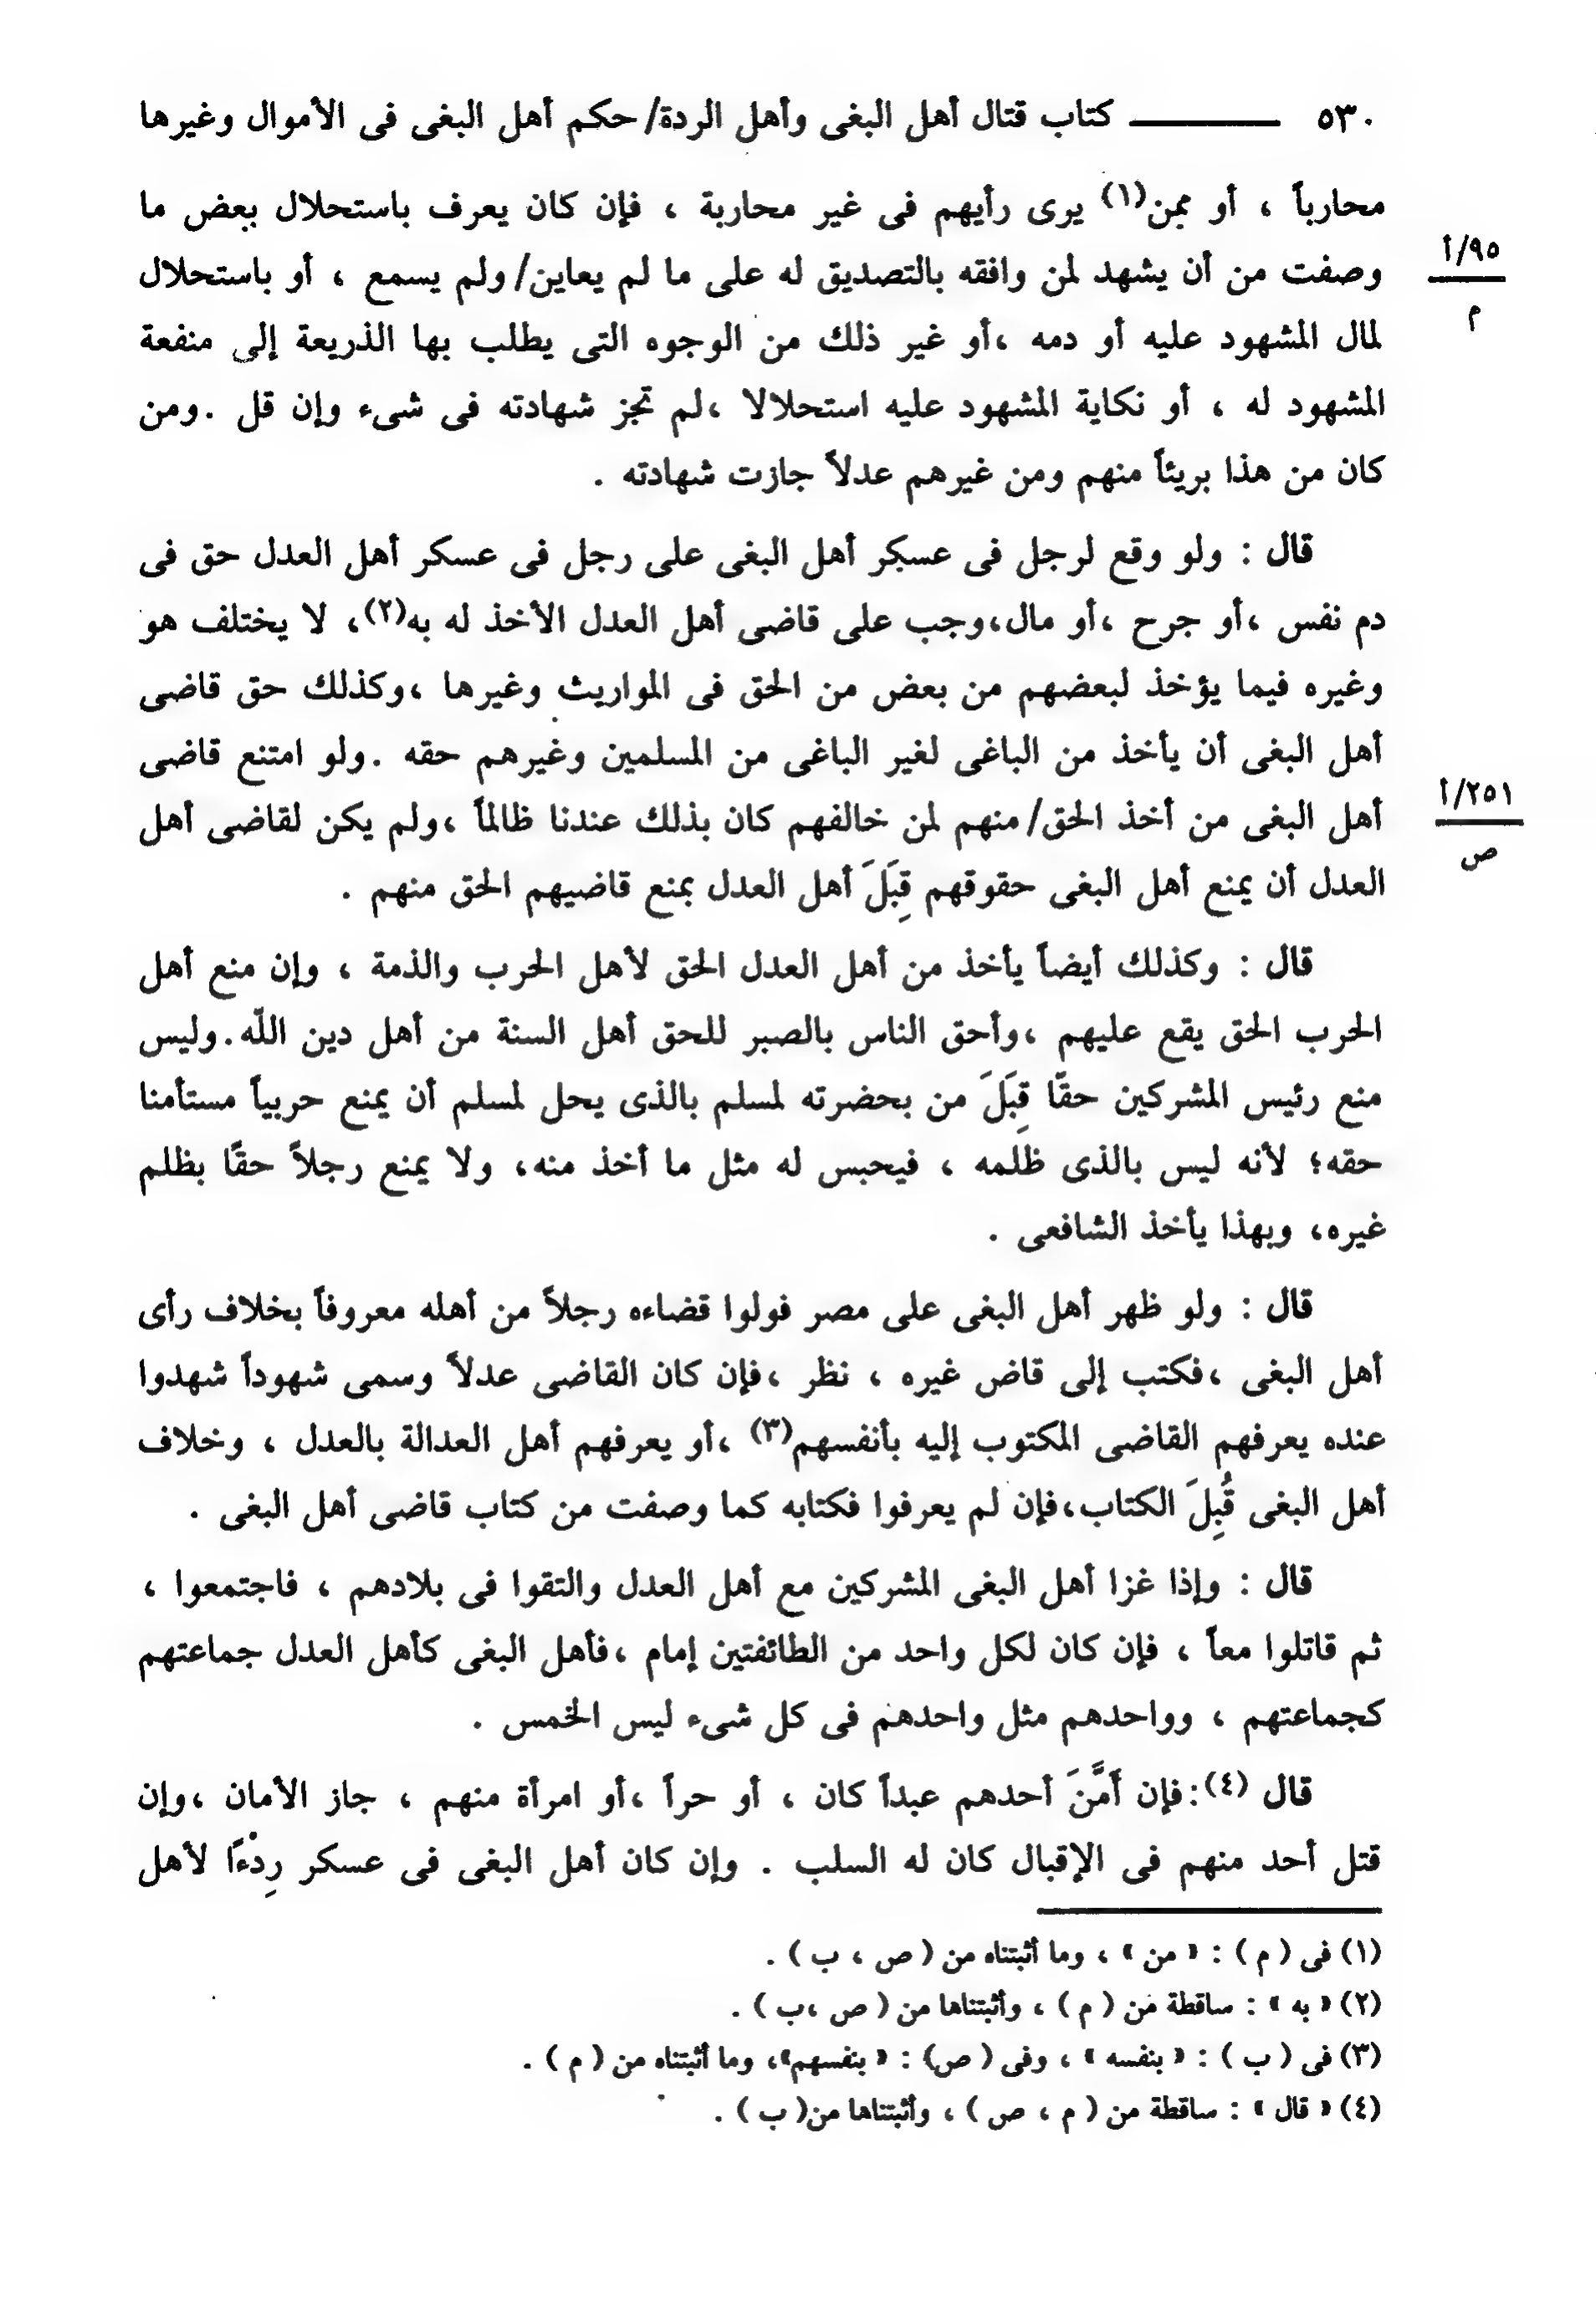 ٥٣٠ ـــــــــ كتاب قتال أهل البغى وأهل الردة/ حكم أهل البغى فى الأموال وغيرها
محارباً ، أو ممن(١) يرى رأيهم فى غير محاربة ، فإن كان يعرف باستحلال بعض ما
وصفت من أن يشهد لمن وافقه بالتصديق له على ما لم يعاين/ ولم يسمع ، أو باستحلال
٩٥/أ
م
لمال المشهود عليه أو دمه ،أو غير ذلك من الوجوه التى يطلب بها الذريعة إلى منفعة
المشهود له ، أو نكاية المشهود عليه استحلالا ،لم تجز شهادته فى شىء وإن قل .ومن
كان من هذا بريئاً منهم ومن غيرهم عدلاً جازت شهادته .
قال : ولو وقع لرجل فى عسكر أهل البغى على رجل فى عسكر أهل العدل حق فى
دم نفس ،أو جرح ،أو مال،وجب على قاضى أهل العدل الأخذ له به(٢)، لا يختلف هو
وغيره فيما يؤخذ لبعضهم من بعض من الحق فى المواريث وغيرها ،وكذلك حق قاضى
أهل البغى أن يأخذ من الباغى لغير الباغى من المسلمين وغيرهم حقه .ولو امتنع قاضى
أهل البغى من أخذ الحق/ منهم لمن خالفهم كان بذلك عندنا ظالماً ،ولم يكن لقاضى أهل
٢٥١/أ
ص
العدل أن يمنع أهل البغى حقوقهم قِبَلَ أهل العدل بمنع قاضيهم الحق منهم .
قال : وكذلك أيضاً يأخذ من أهل العدل الحق لأهل الحرب والذمة ، وإن منع أهل
الحرب الحق يقع عليهم ،وأحق الناس بالصبر للحق أهل السنة من أهل دين اللّه.وليس
منع رئيس المشركين حقّا قِبَلَ من بحضرته لمسلم بالذى يحل لمسلم أن يمنع حربياً مستأمنا
حقه؛ لأنه ليس بالذى ظلمه ، فيحبس له مثل ما أخذ منه، ولا يمنع رجلاً حقًا بظلم
غيره، وبهذا يأخذ الشافعى .
قال : ولو ظهر أهل البغى على مصر فولوا قضاءه رجلاً من أهله معروفاً بخلاف رأى
أهل البغى ،فكتب إلى قاض غيره ، نظر ،فإن كان القاضى عدلاً وسمى شهوداً شهدوا
عنده يعرفهم القاضى المكتوب إليه بأنفسهم(٣) ،أو يعرفهم أهل العدالة بالعدل ، وخلاف
أهل البغى قُبِلَ الكتاب،فإن لم يعرفوا فكتابه كما وصفت من كتاب قاضى أهل البغى .
قال : وإذا غزا أهل البغى المشركين مع أهل العدل والتقوا فى بلادهم ، فاجتمعوا ،
ثم قاتلوا معاً ، فإن كان لكل واحد من الطائفتين إمام ،فأهل البغى كأهل العدل جماعتهم
كجماعتهم ، وواحدهم مثل واحدهم فى كل شىء ليس الخمس .
قال (٤):فإن أَمَّنَ أحدهم عبداً كان ، أو حراً ،أو امرأة منهم ، جاز الأمان ،وإن
قتل أحد منهم فى الإقبال كان له السلب . وإن كان أهل البغى فى عسكر رِدْءًا لأهل
(١) فى ( م ) : « من » ، وما أثبتناه من ( ص ، ب ) .
(٢) « به » : ساقطة من ( م ) ، وأثبتناها من ( ص ،ب ) .
(٣) فى ( ب ) : « بنفسه » ، وفى ( ص) : « بنفسهم»، وما أثبتناه من ( م ) .
(٤) « قال » : ساقطة من ( م ، ص ) ، وأثبتناها من( ب ) .